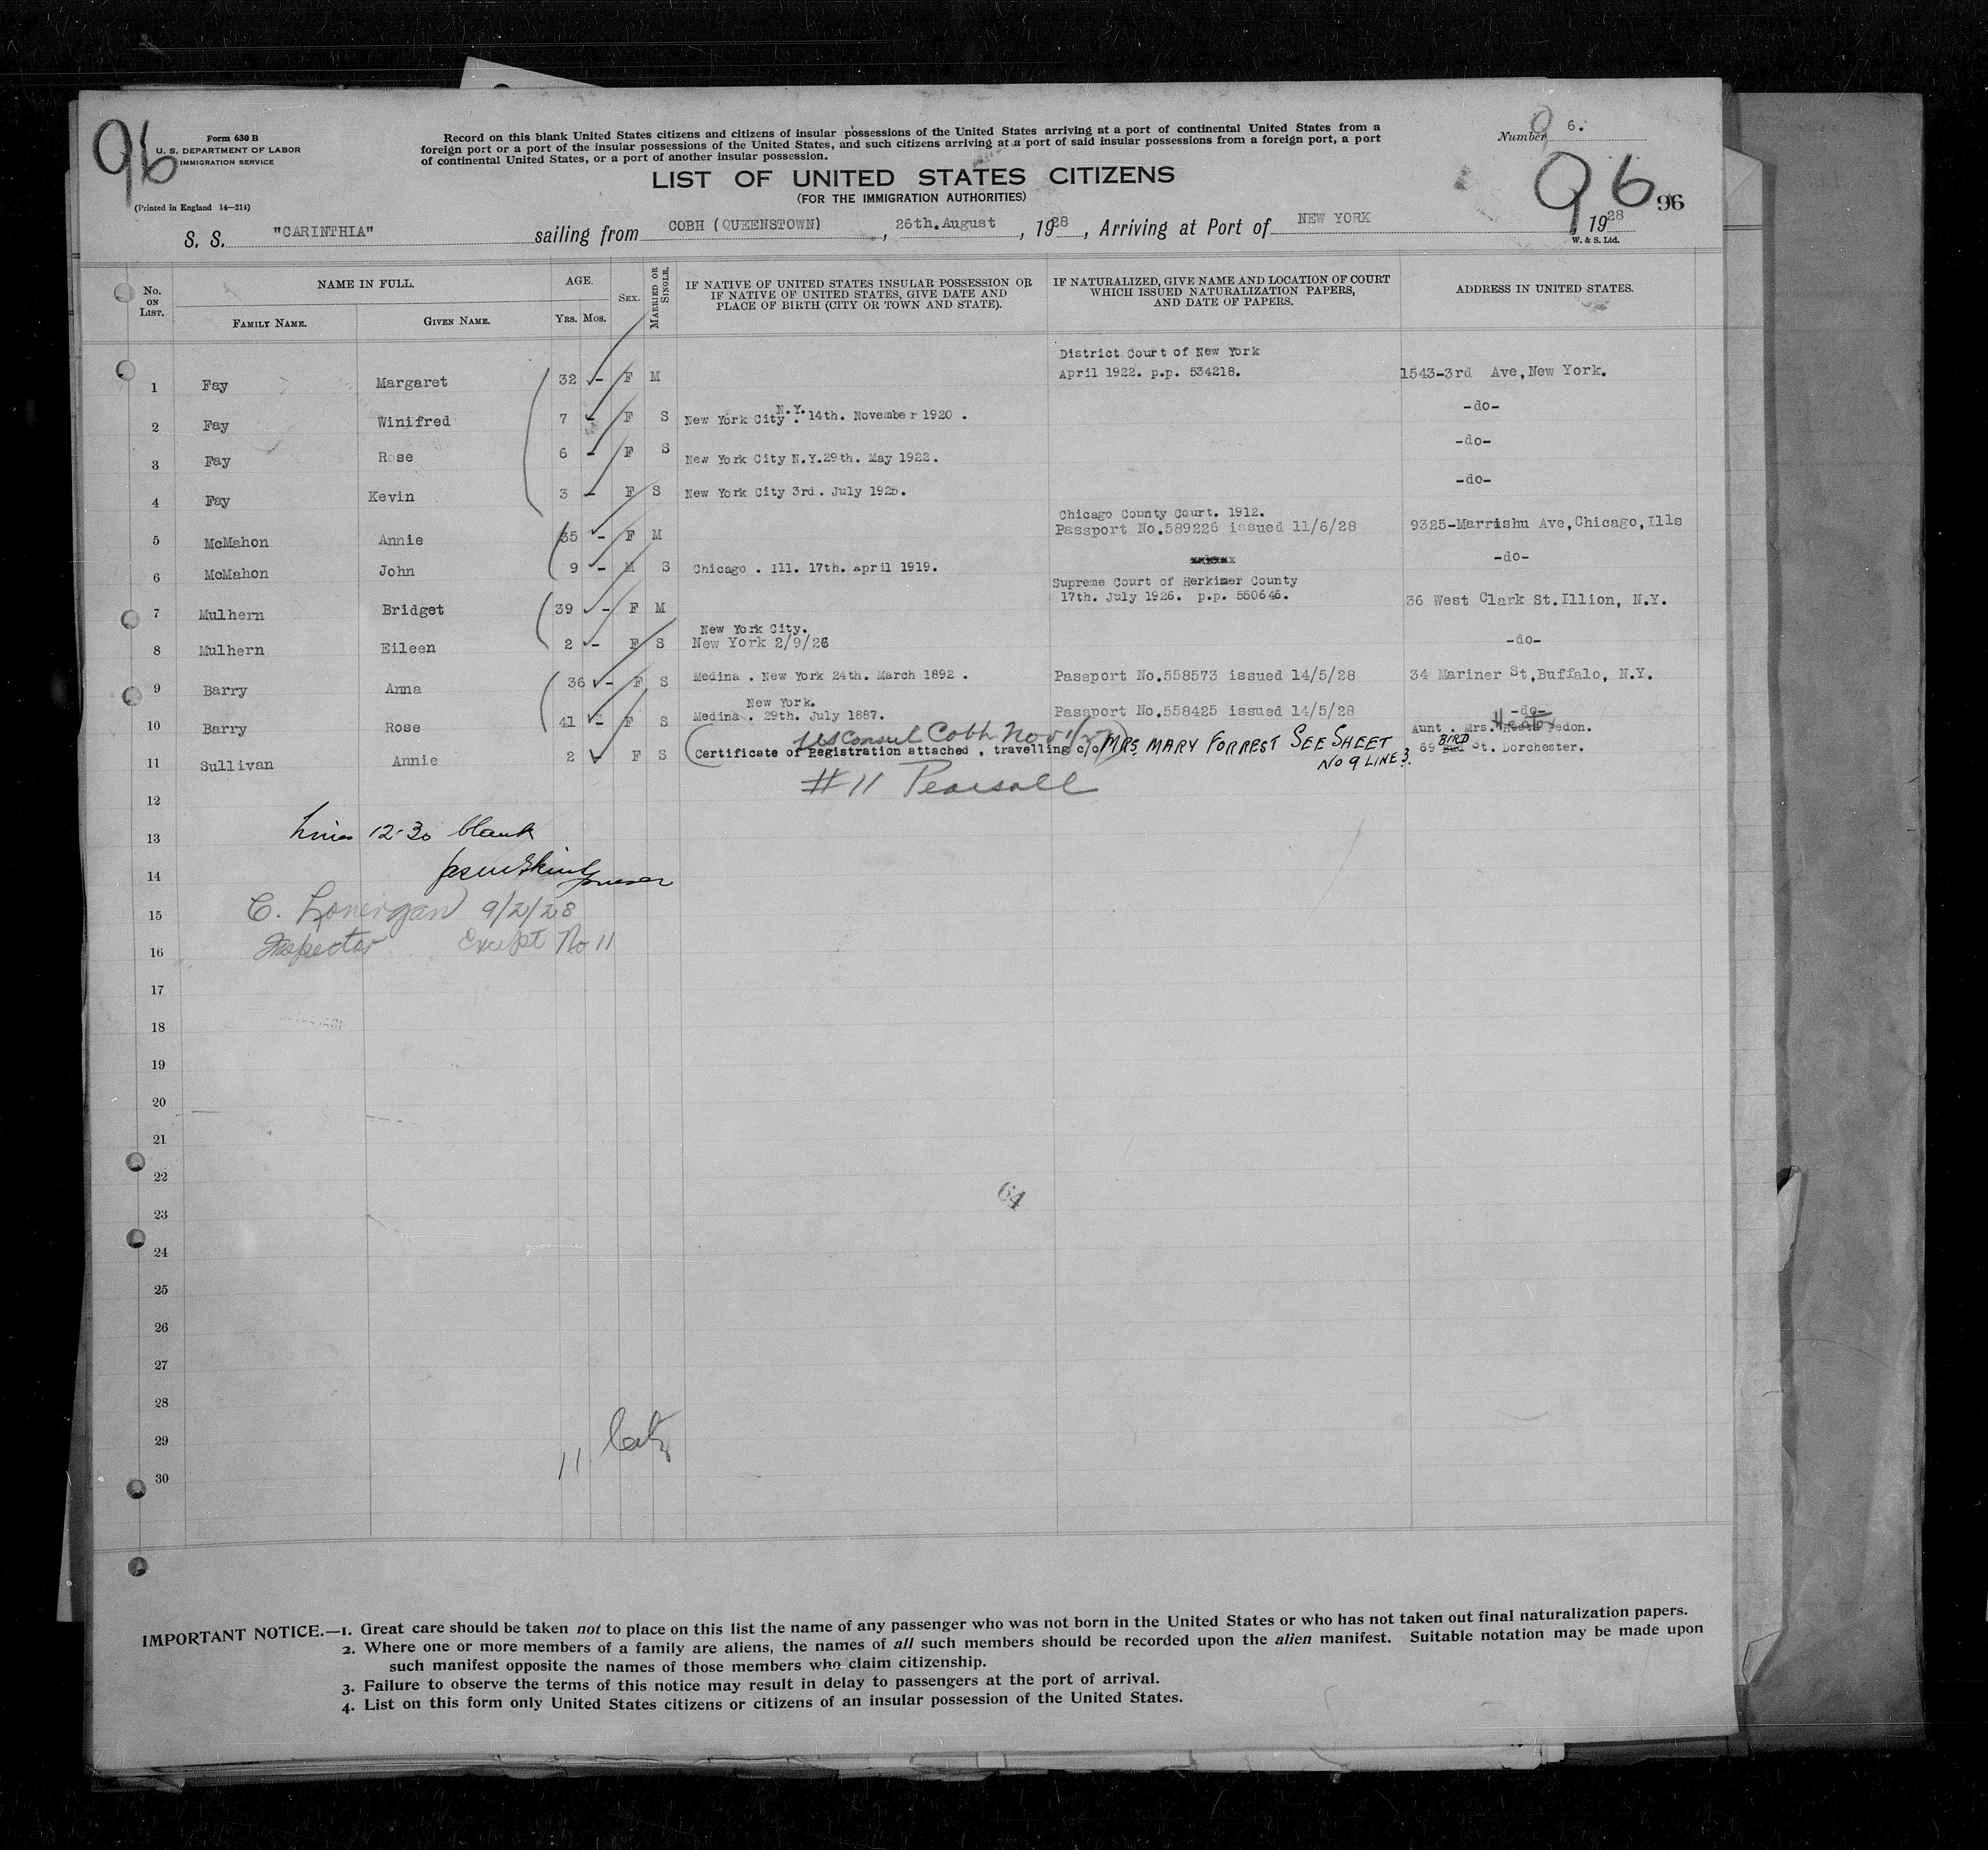 96
Form 630 B
U. S. DEPARTMENT OF LABOR
IMMIGRATION SERVICE
(Printed in England 14—214)
Record on this blank United States citizens and citizens of insular possessions of the United States arriving at a port of continental United States from a
foreign port or a port of the insular possessions of the United States, and such citizens arriving at a port of said insular possessions from a foreign port, a port
of continental United States, or a port of another insular possession.
Number 6.
96
96
LIST OF UNITED STATES CITIZENS
(FOR THE IMMIGRATION AUTHORITIES)
S. S. "CARINTHIA" sailing from COBH (QUEENSTOWN), 26th.August, 1928, Arriving at Port of NEW YORK, 1928
W. & S. Ltd.
No. ON LIST. NAME IN FULL. FAMILY NAME. GIVEN NAME. AGE. YRS. MOS. SEX. MARRIED OR SINGLE. IF NATIVE OF UNITED STATES INSULAR POSSESSION OR IF NATIVE OF UNITED STATES, GIVE DATE AND PLACE OF BIRTH (CITY OR TOWN AND STATE). IF NATURALIZED, GIVE NAME AND LOCATION OF COURT WHICH ISSUED NATURALIZATION PAPERS, AND DATE OF PAPERS. ADDRESS IN UNITED STATES.
1 Fay Margaret 32 - F M District Court of New York April 1922. p.p. 534218. 1543-3rd Ave,New York.
2 Fay Winifred 7 - F S New York City N.Y. 14th. November 1920 . -do-
3 Fay Rose 6 - F S New York City N.Y.29th. May 1922. -do-
4 Fay Kevin 3 - F S New York City 3rd. July 1925. -do-
5 McMahon Annie 35 - F M Chicago County Court. 1912. Passport No.589226 issued 11/6/28 9325-Marrishu Ave,Chicago,Ills
6 McMahon John 9 - M S Chicago . Ill. 17th. April 1919. -do-
7 Mulhern Bridget 39 - F M Supreme Court of Herkimer County 17th. July 1926. p.p. 550646. 36 West Clark St.Illion, N.Y.
8 Mulhern Eileen 2 - F S New York City. New York 2/9/26 -do-
9 Barry Anna 36 - F S Medina . New York 24th. March 1892 . Passport No.558573 issued 14/5/28 34 Mariner St,Buffalo, N.Y.
10 Barry Rose 41 - F S New York. Medina . 29th. July 1887. Passport No.558425 issued 14/5/28 -do-
US Consul Cobh Nov
11 Sullivan Annie 2 F S Certificate of Registration attached , travelling c/o MRS MARY FORREST SEE SHEET NO 9 LINE 3. Aunt . Mrs. Fedon. 69 BIRD St. Dorchester.
#11 Pearsall
12
13 Lines 12-30 blank
14
15 C. Lonergan 9/2/28
16 Inspector Except No 11
17
18
19
20
21
22
64
23
24
25
26
27
28
29
11
30
IMPORTANT NOTICE.—1. Great care should be taken not to place on this list the name of any passenger who was not born in the United States or who has not taken out final naturalization papers.
2. Where one or more members of a family are aliens, the names of all such members should be recorded upon the alien manifest. Suitable notation may be made upon
such manifest opposite the names of those members who claim citizenship.
3. Failure to observe the terms of this notice may result in delay to passengers at the port of arrival.
4. List on this form only United States citizens or citizens of an insular possession of the United States.